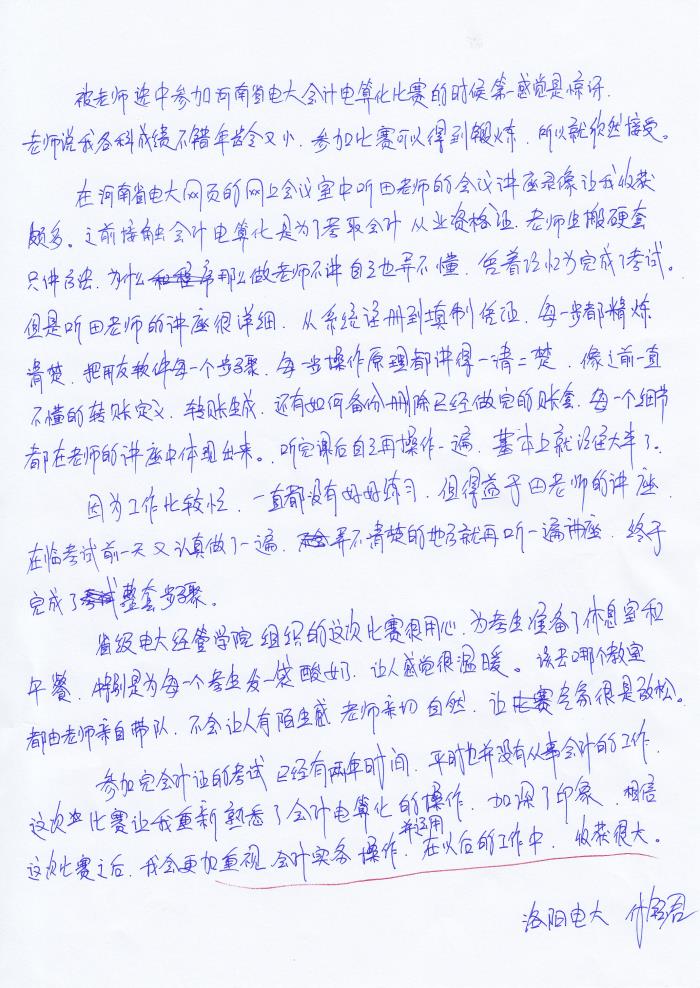 被老师选中参加河南省电大会计电算化比赛的时候第一感觉是惊讶.
老师说我各科成绩不错年龄又小.参加比赛可以得到锻炼.所以就欣然接受。
在河南省电大网页的网上会议室中听田老师的会议讲座录像让我收获
颇多。之前接触会计电算化是为了考取会计从业资格证.老师生搬硬套
只讲方法.为什么那么做老师不讲自己也弄不懂.凭着记忆完成了考试。
但是听田老师的讲座很详细.从系统注册到填制凭证.每一步都精炼
清楚.把用友软件每一个步骤.每一步操作原理都讲得一清二楚.像之前一直
不懂的转账定义.转账生成.还有如何备份删除已经做完的账套.每一个细节
都在老师的讲座中体现出来。听完课后自己再操作一遍.基本上就记住大半了.
因为工作比较忙.一直都没有好好练习.但得益于田老师的讲座.
在临考试前一天又认真做了一遍.弄不清楚的地方就再听一遍讲座.终于
完成了整套步骤。
省级电大经管学院组织的这次比赛很用心.为考生准备了休息室和
午餐.特别是为每一个考生发一袋酸奶.让人感觉很温暖。该去哪个教室
都由老师亲自带队.不会让人有陌生感 老师亲切自然.让大家很是放松。
参加完会计证的考试已经有两年时间.平时也并没有从事会计的工作.
这次比赛让我重新熟悉了会计电算化的操作.加深了印象.相信
这次比赛之后.我会更加重视会计实务操作.并运用在以后的工作中.收获很大。
洛阳电大